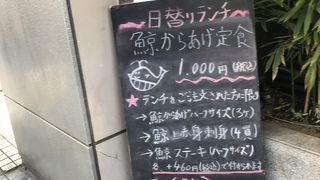 日替りランチ
鯨からあげ定食
1.000円(税込)
★ランチをご注文された方に限り
→鯨からあげハーフサイズ(3ケ)
→鯨上赤身刺身(4貫)
→鯨ステーキ(ハーフサイズ)
各 +460円(税込)で付けられます